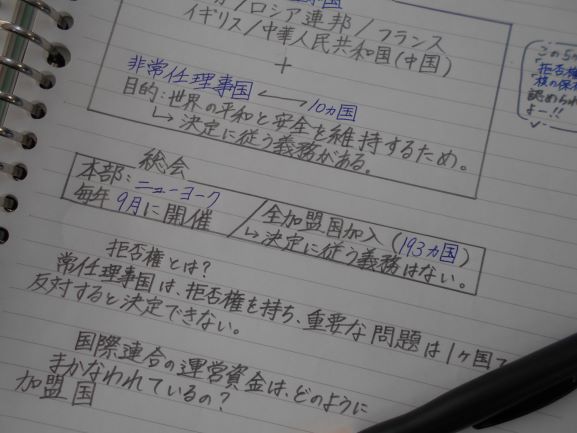 ロシア連邦/フランス
イギリス/中華人民共和国(中国)
+
非常任理事国 ⟷ 10ヵ国
目的:世界の平和と安全を維持するため。
↳決定に従う義務がある。
この5
拒否権
核の保
認められ
よー!!
総会
本部:ニューヨーク
毎年9月に開催
/全加盟国加入(193ヵ国)
↳決定に従う義務はない。
拒否権とは?
常任理事国は、拒否権を持ち、重要な問題は1ヶ国で
反対すると決定できない。
国際連合の運営資金は、どのように
まかなわれているの?
加盟国